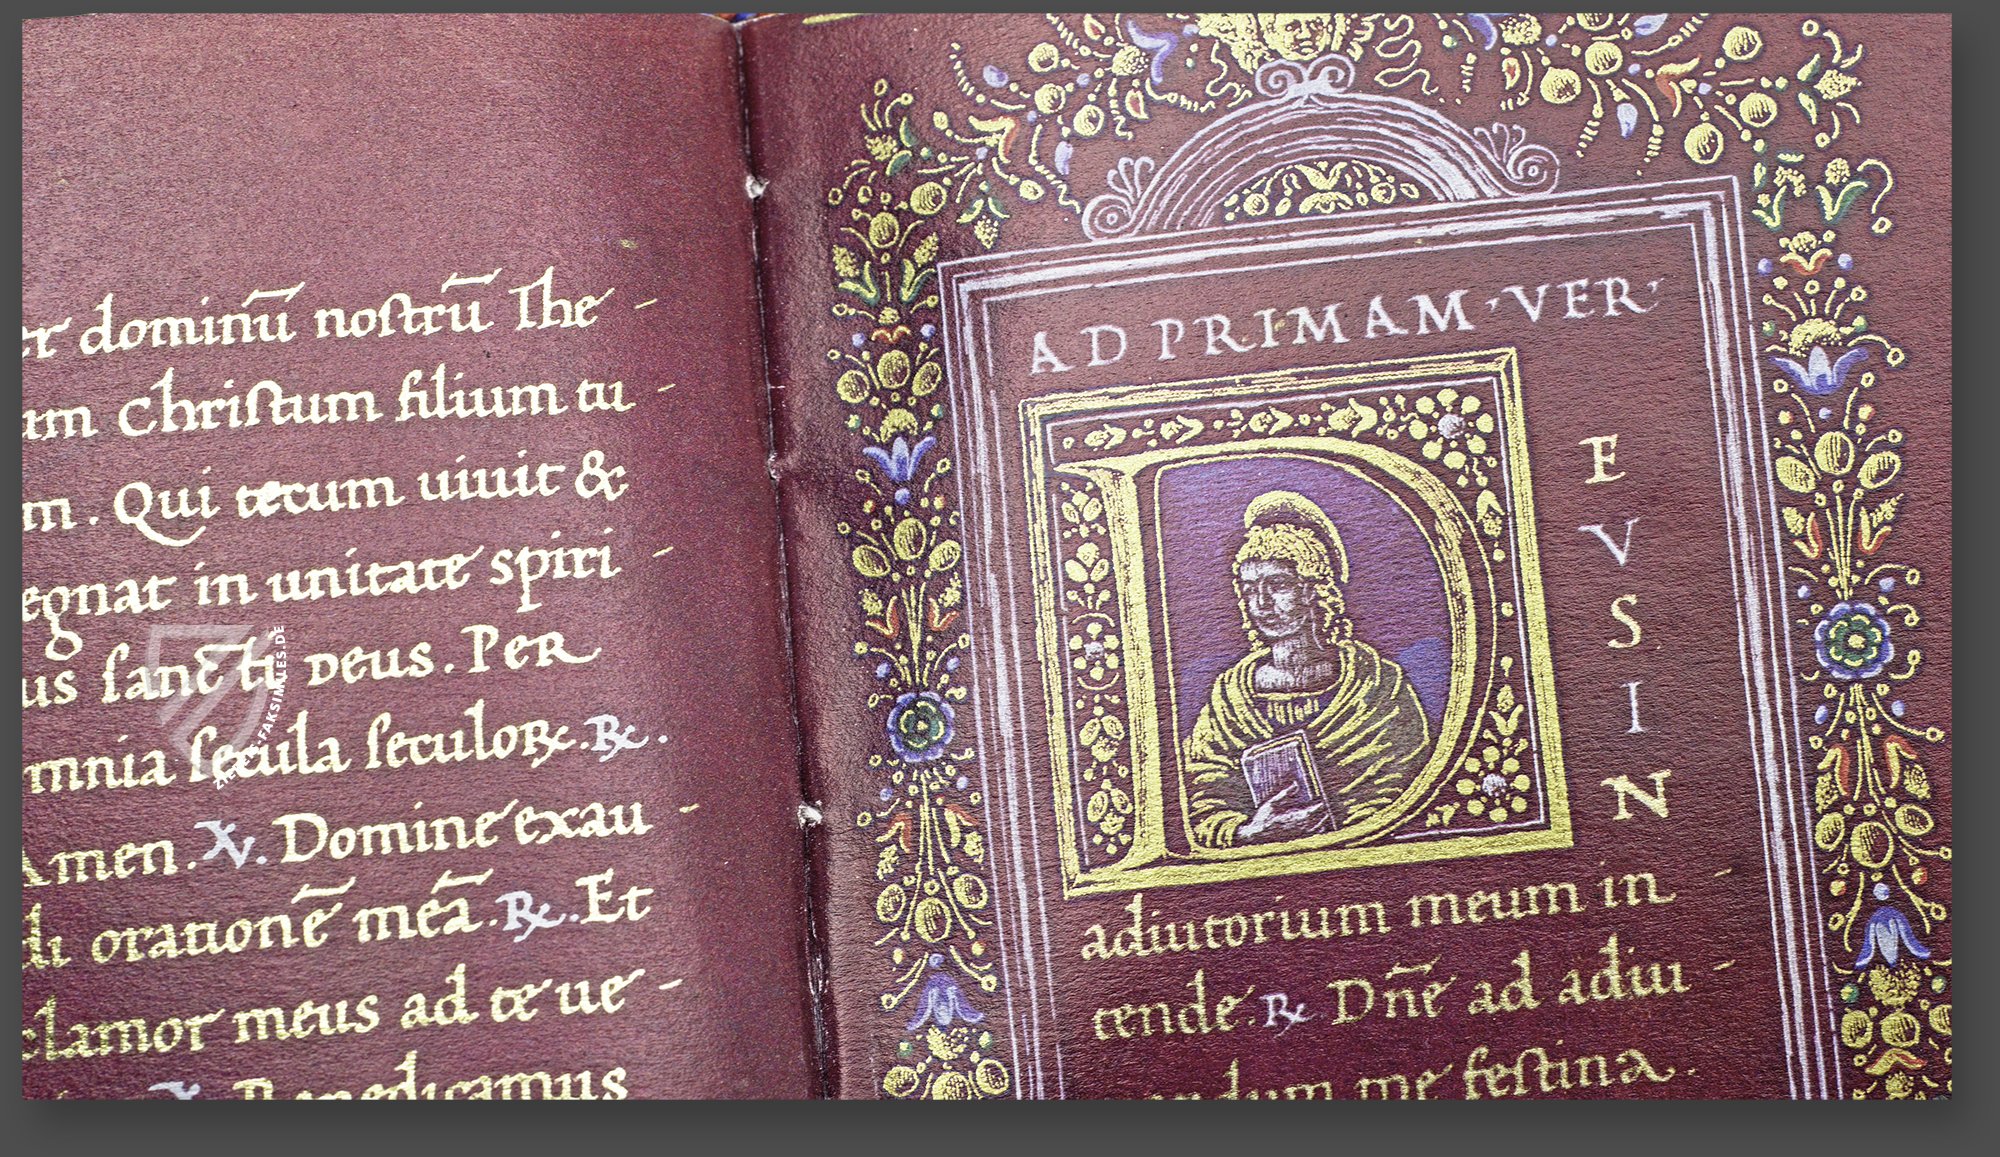 er dominū nostrū Ihe-
um Christum filium tu-
m. Qui tecum uiuit &
egnat in unitate spiri-
us sancti deus. Per
mnia secula seculoꝝ. ℞.
Amen. ℣. Domine exau-
di orationē meā. ℞. Et
clamor meus ad te ue-
℣. Benedicamus
AD PRIMAM·VER·
DEVS IN
adiutorium meum in-
tende. ℞ Dn̄e ad adiu-
andum me festina.
ZIEREIS-FAKSIMILES.DE